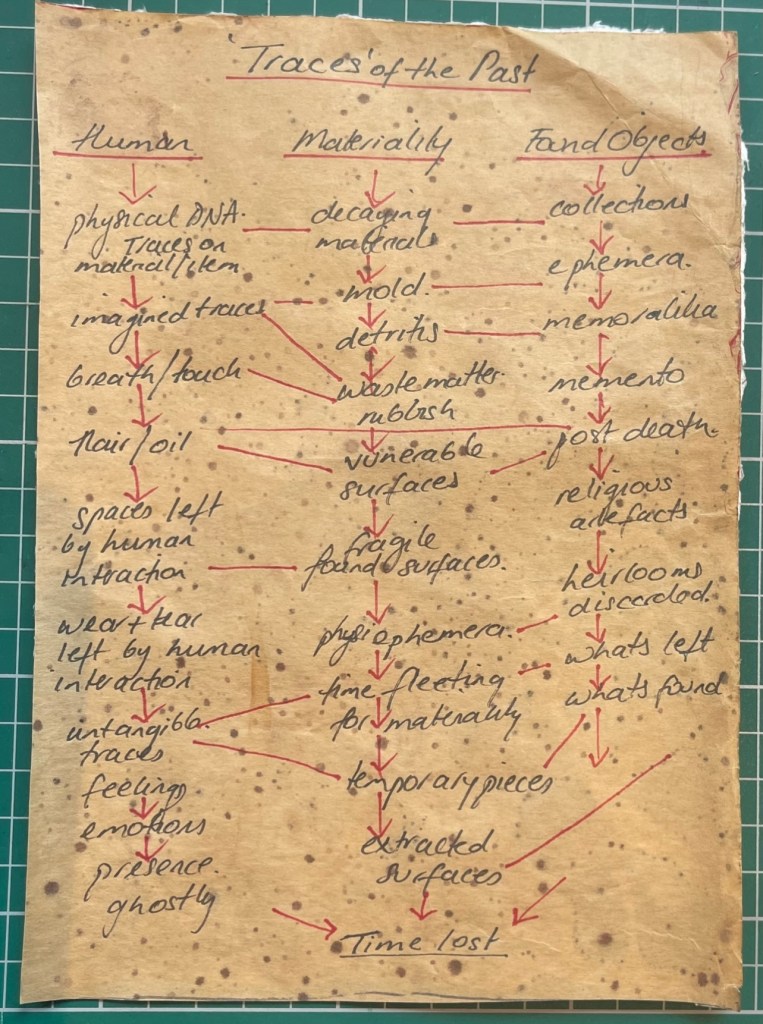 'Traces' of the Past
Human
physical DNA.
Traces on
material/item
imagined traces
breath/touch
hair/oil
spaces left
by human
intraction
wear + tear
left by human
interaction
intangible
traces
feelings
emotions
presence.
ghostly
Materiality
decaying
materials
mold.
detritis
waste matter
rubbish
vunerable
surfaces
fragile
found surfaces.
physi ephemera.
time fleeting
for materality
temporary pieces
extracted
surfaces
Found Objects
collections
ephemera.
memoralilia
memento
post death.
religious
artefacts
heirlooms
discarded.
whats left
whats found
Time lost